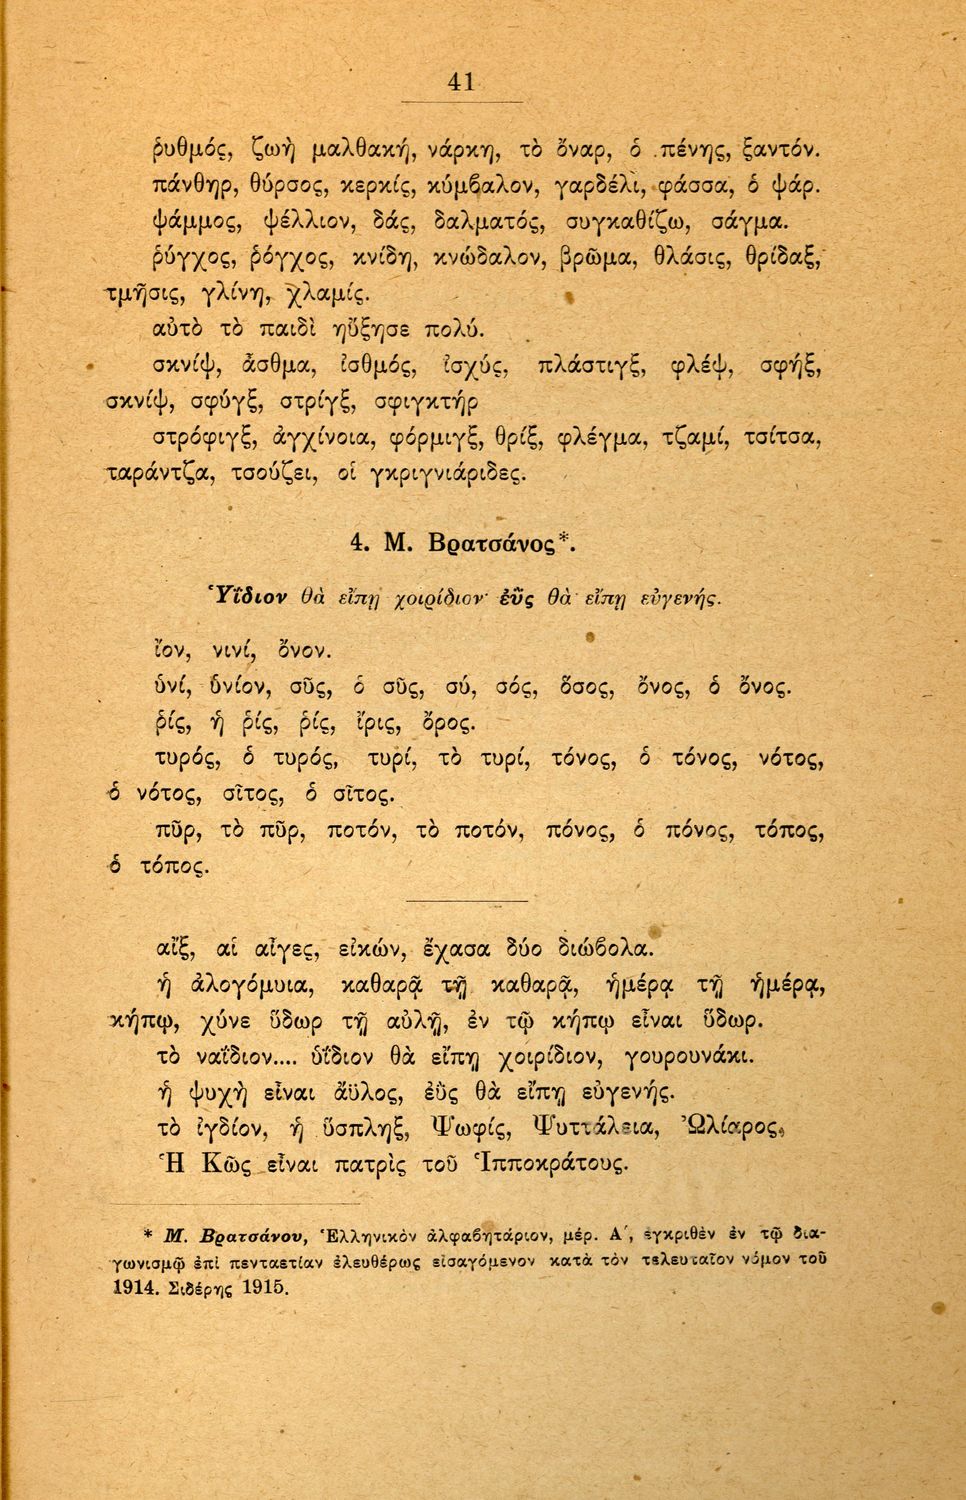 41
ῥυθμός, ζωὴ μαλθακή, νάρκη, τὸ ὄναρ, ὁ πένης, ξαντόν.
πάνθηρ, θύρσος, κερκίς, κύμβαλον, γαρδέλι, φάσσα, ὁ ψάρ.
ψάμμος, ψέλλιον, δάς, δαλματός, συγκαθίζω, σάγμα.
ῥύγχος, ῥόγχος, κνίδη, κνώδαλον, βρῶμα, θλάσις, θρίδαξ,
τμῆσις, γλίνη, χλαμίς.
αὐτὸ τὸ παιδὶ ηὔξησε πολύ.
σκνίψ, ἆσθμα, ἰσθμός, ἰσχύς, πλάστιγξ, φλέψ, σφήξ,
σκνίψ, σφύγξ, στρίγξ, σφιγκτήρ
στρόφιγξ, ἀγχίνοια, φόρμιγξ, θρίξ, φλέγμα, τζαμί, τσίτσα,
ταράντζα, τσούζει, οἱ γκριγνιάριδες.
4. Μ. Βρατσάνος*.
Ὑΐδιον θὰ εἴπῃ χοιρίδιον· ἐῢς θὰ εἴπῃ εὐγενής.
ἴον, νινί, ὄνον.
ὑνί, ὑνίον, σῦς, ὁ σῦς, σύ, σός, ὅσος, ὄνος, ὁ ὄνος.
ῥίς, ἡ ῥίς, ῥίς, ἶρις, ὄρος.
τυρός, ὁ τυρός, τυρί, τὸ τυρί, τόνος, ὁ τόνος, νότος,
ὁ νότος, σῖτος, ὁ σῖτος.
πῦρ, τὸ πῦρ, ποτόν, τὸ ποτόν, πόνος, ὁ πόνος, τόπος,
ὁ τόπος.
αἴξ, αἱ αἶγες, εἰκών, ἔχασα δύο διώβολα.
ἡ ἀλογόμυια, καθαρᾷ τῇ καθαρᾷ, ἡμέρᾳ τῇ ἡμέρᾳ,
κήπῳ, χύνε ὕδωρ τῇ αὐλῇ, ἐν τῷ κήπῳ εἶναι ὕδωρ.
τὸ ναΐδιον.... ὑΐδιον θὰ εἴπῃ χοιρίδιον, γουρουνάκι.
ἡ ψυχὴ εἶναι ἄϋλος, ἐῢς θὰ εἴπῃ εὐγενής.
τὸ ἰγδίον, ἡ ὕσπληξ, Ψωφίς, Ψυττάλεια, Ὠλίαρος,
Ἡ Κῶς εἶναι πατρὶς τοῦ Ἱπποκράτους.
* Μ. Βρατσάνου, Ἑλληνικὸν ἀλφαβητάριον, μέρ. Α΄, ἐγκριθὲν ἐν τῷ δια-
γωνισμῷ ἐπὶ πενταετίαν ἐλευθέρως εἰσαγόμενον κατὰ τὸν τελευταῖον νόμον τοῦ
1914. Σιδέρης 1915.